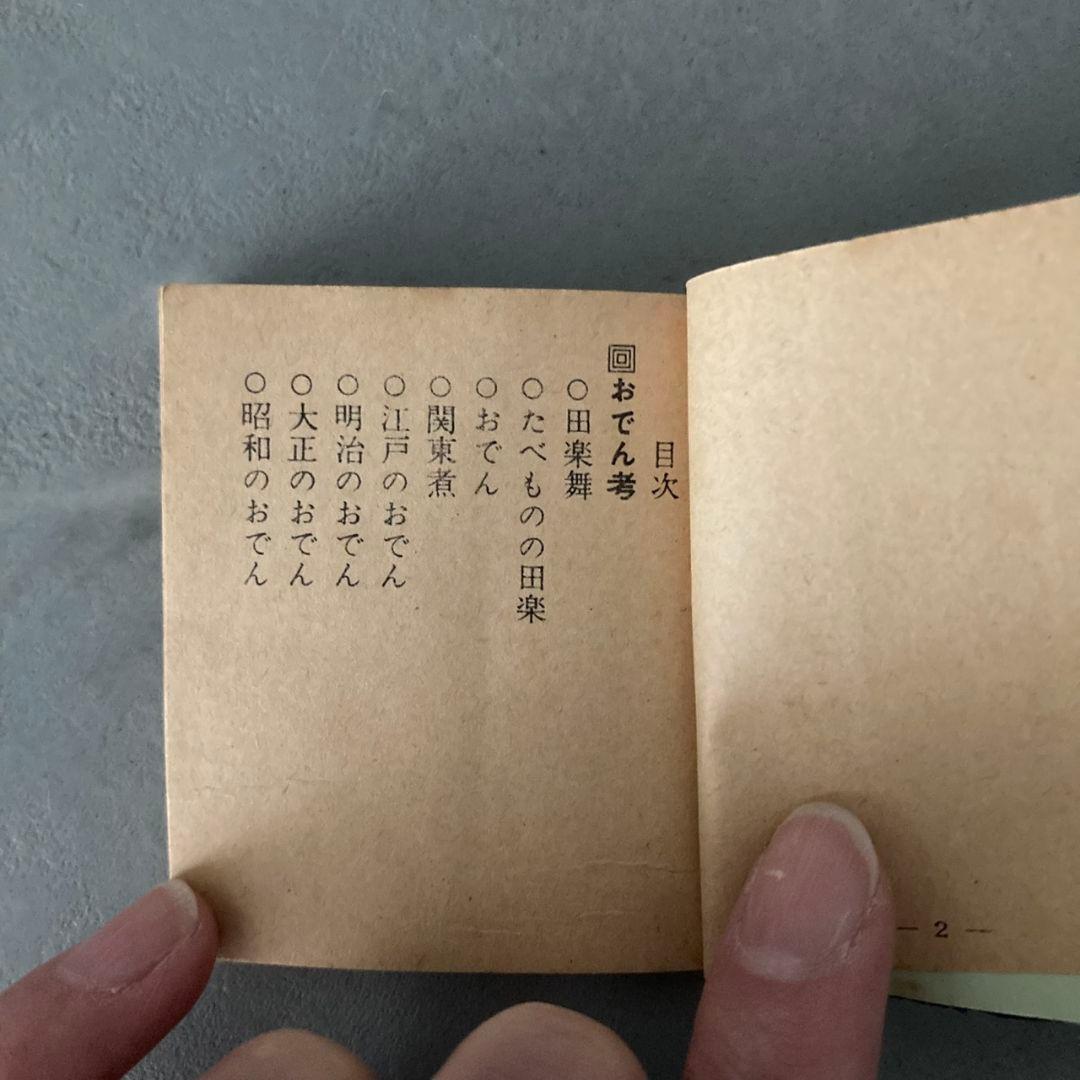 目次
回おでん考
○田楽舞
○たべものの田楽
○おでん
○関東煮
○江戸のおでん
○明治のおでん
○大正のおでん
○昭和のおでん
— 2 —